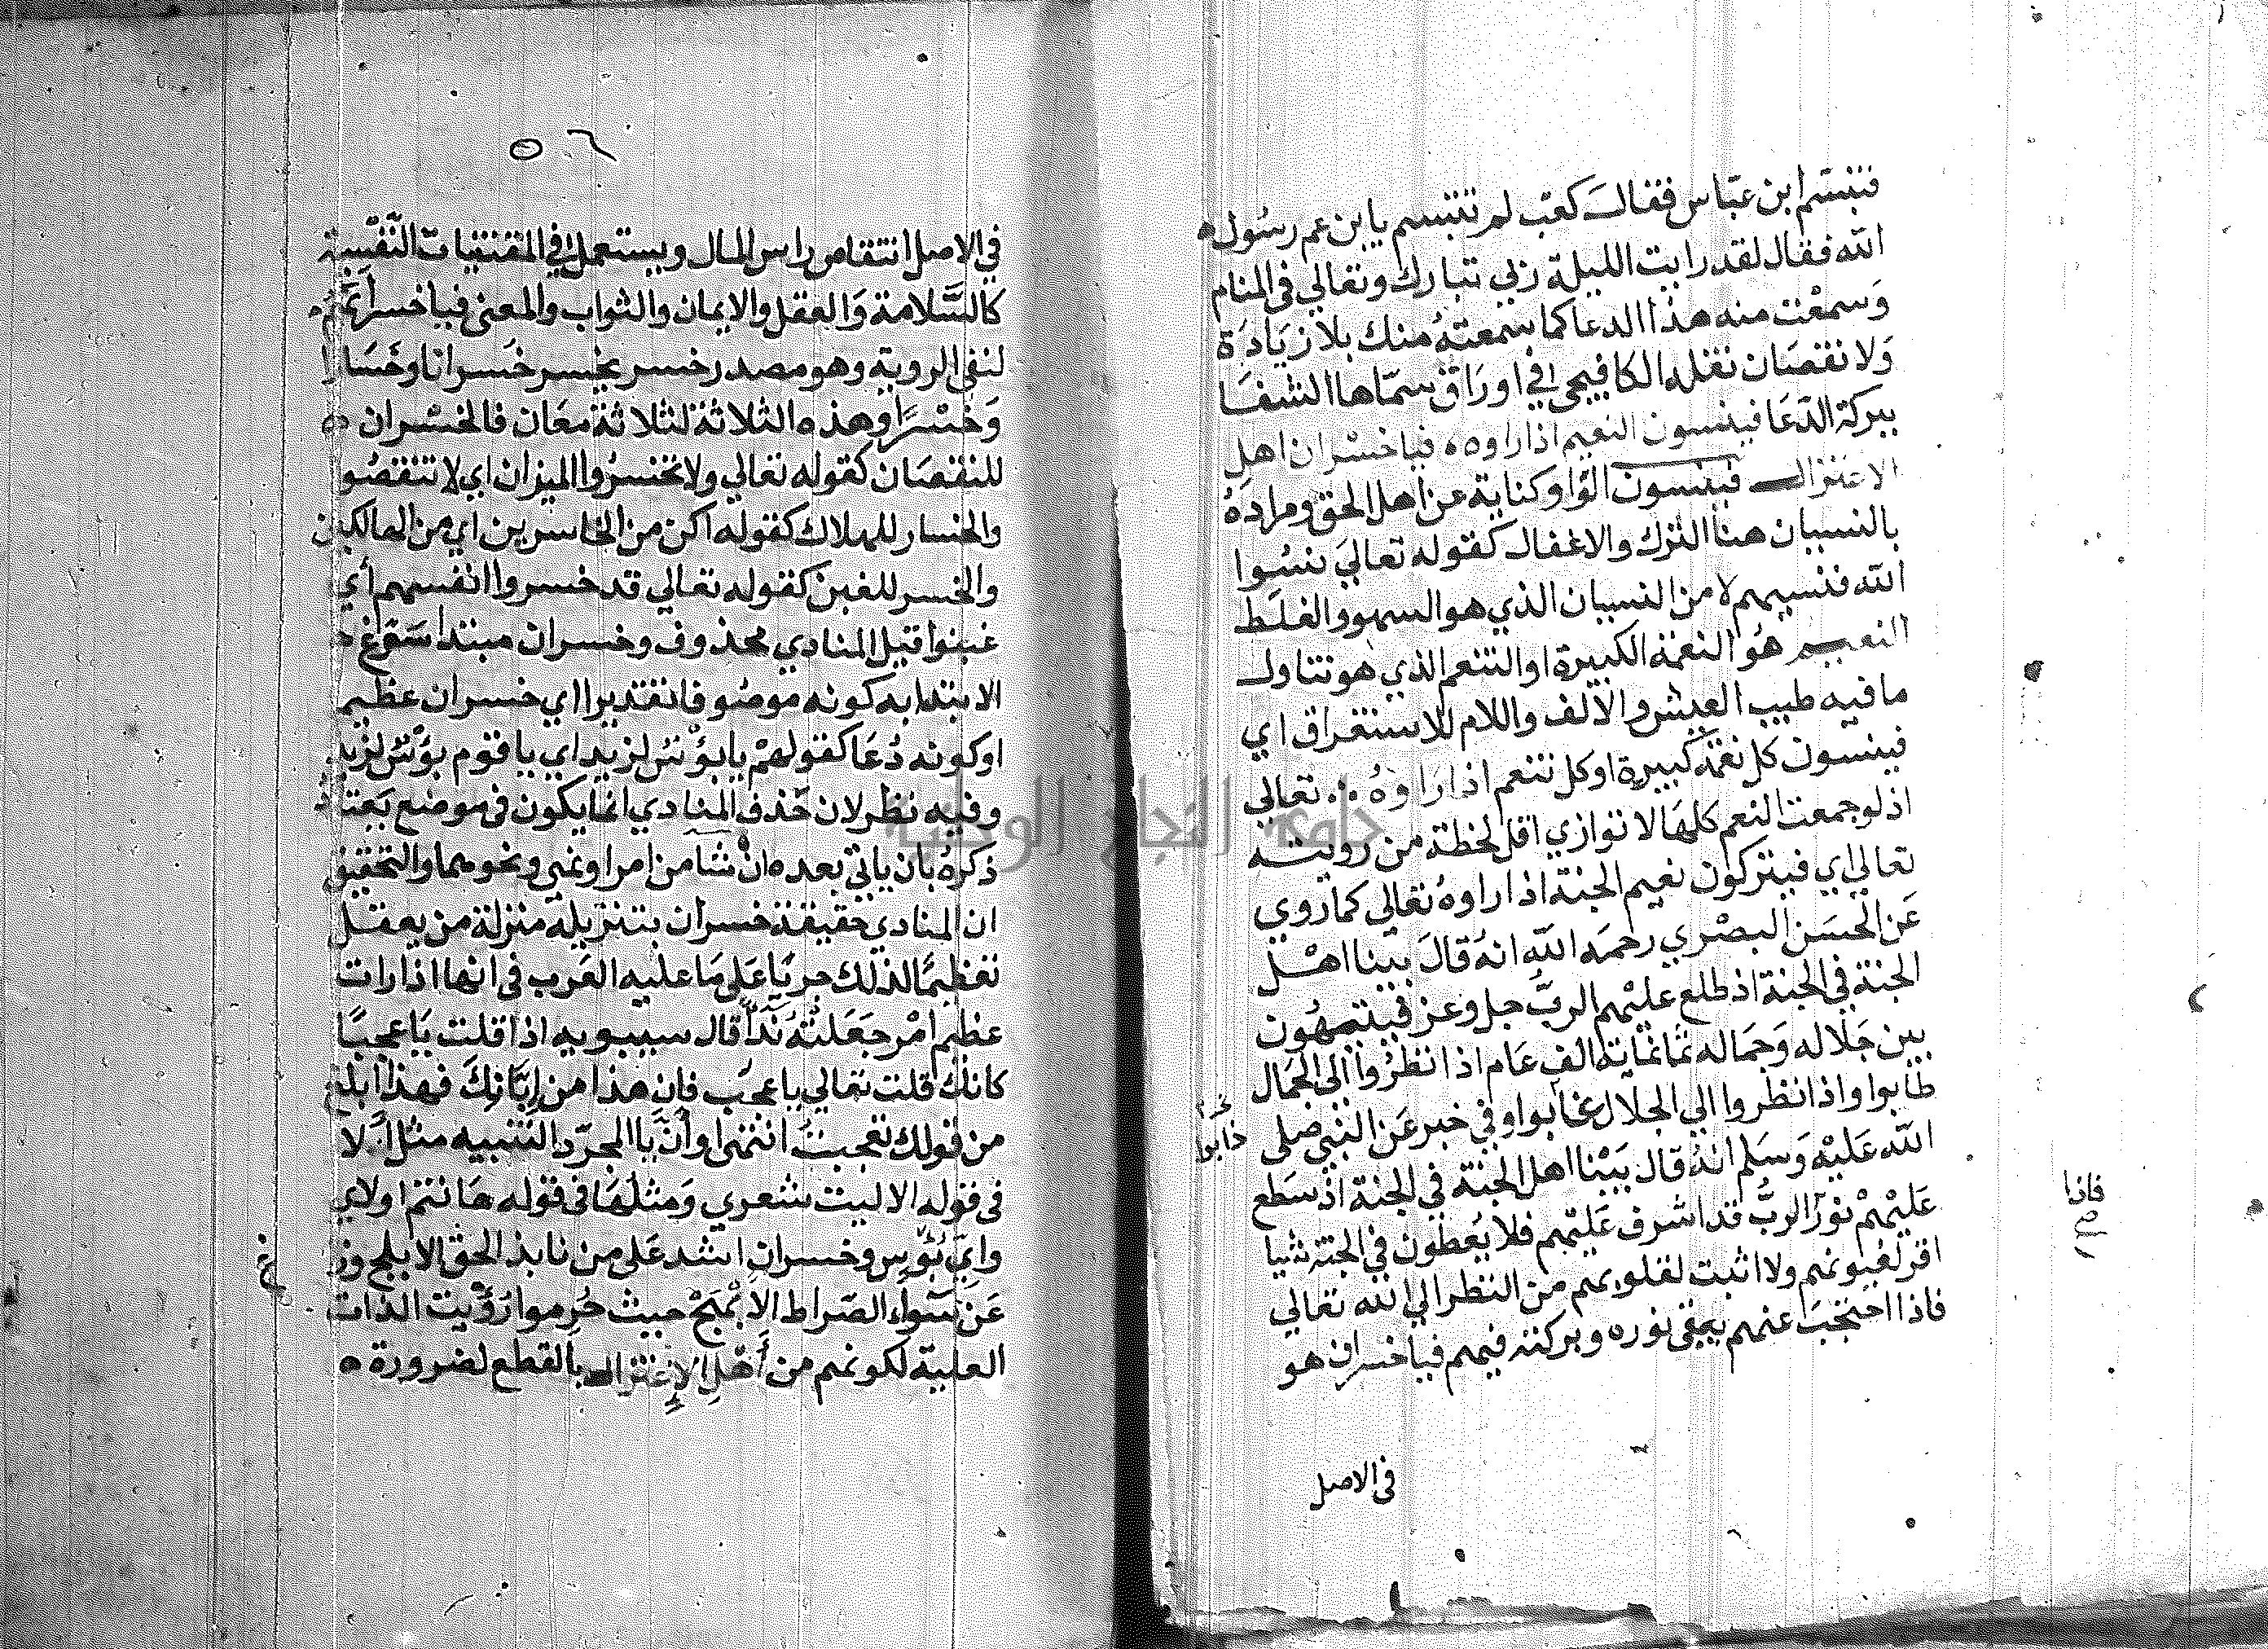 فتبسم ابن عباس فقال كعب لم تتبسم يا ابن عم رسول
الله فقال لقد رايت الليلة ربي تبارك وتعالي في المنام
وسمعت منه هذا الدعا كما سمعته منك بلا زيادة
ولا نقصان نقله الكافيجي في اوراق سماها الشفا
ببركة الدعا فينسون النعيم اذا راوه فيا خسران اهل
الاعتزال فينسون الواو كناية عن اهل الحق ومراده
بالنسيان هنا الترك والاغفال كقوله تعالي نسوا
الله فنسيهم لا من النسيان الذي هو السهو والغلط
النعيم هو النعمة الكبيرة او التنعم الذي هو تناول
ما فيه طيب العيش والالف واللام للاستغراق اي
فينسون كل نعمة كبيرة او كل تنعم اذا راوه تعالي
اذ لو جمعت النعم كلها لا توازي اقل لحظة من رويته
تعالي اي فيتركون نعيم الجنة اذا راوه تعالي كما روي
عن الحسن البصري رحمه الله انه قال بينا اهل
الجنة في الجنة اذ طلع عليهم الرب جل وعز فيتيهون
بين جلاله وجماله ثمانماية الف عام اذا نظروا الي الجمال
طابوا واذا نظروا الي الجلال غابوا وفي خبر عن النبي صلي
ذابوا
الله عليه وسلم انه قال بينا اهل الجنة في الجنة اذ سطع
عليهم نور الرب قد اشرف عليهم فلا يعطون في الجنة شيا
اقر لعيونهم ولا اثبت لقلوبهم من النظر الي الله تعالي
فاذا
فاذا احتجب عنهم يبقي نوره وبركته فيهم فيا خسران هو
في الاصل
٥٦
في الاصل انتقاص راس المال ويستعمل في المقتنيات النفسية
كالسلامة والعقل والايمان والثواب والمعني فيا خسرانهم
لنفي الروية وهو مصدر خسر يخسر خسرانا وخسارا
وخسرا وهذه الثلاثة لثلاثة معان فالخسران
للنقصان كقوله تعالي ولا تخسروا الميزان اي لا تنقصوا
والخسار للهلاك كقوله اكن من الخاسرين اي من الهالكين
والخسر للغبن كقوله تعالي قد خسروا انفسهم أي
غبنوا قيل المنادي محذوف وخسران مبتدا سوغ
الابتدا به كونه موصوفا تقديرا اي خسران عظيم
او كونه دعا كقولهم يا بؤس لزيد اي يا قوم بؤس لزيد
وفيه نظر لان حذف المنادي انما يكون في موضع يعتاد
ذكره بان ياتي بعده ان شا من امر او نهي ونحوهما والتحقيق
ان المنادي حقيقة خسران بتنزيله منزلة من يعقل
تعظيما لذلك جريا علي ما عليه العرب في انها اذا رات
عظيم امر جعلته ندا قال سيبويه اذا قلت يا عجبا
كانك قلت تعالي يا عجب فان هذا من إبانك فهذا ابلغ
من قولك تعجبت انتهي وان يا المجرد التنبيه مثل ألا
في قوله الا ليت شعري ومثلها في قوله ها نتم اولاي
واي بؤس وخسران اشد علي من نابذ الحق الابلج وزاغ
عن سواء الصراط الانهج حيث حرموا رؤيت الذات
العلية لكونهم من أهل الاعتزال بالقطع لضرورة